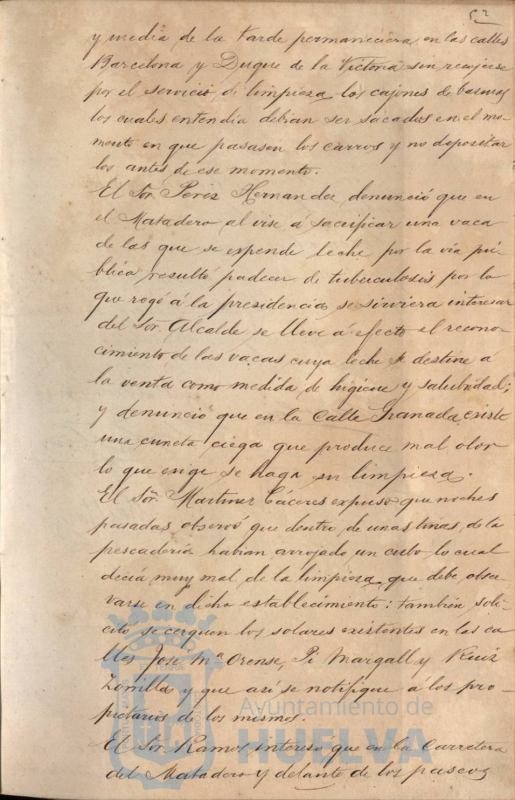 52
y media de la tarde permaneciera en las calles
Barcelona y Duque de la Victoria sin recojerse
por el servicio de limpieza los cajones de basuras
los cuales entendia debian ser sacados en el mo-
mento en que pasasen los carros y no depositar
los antes de ese momento.
El Sor. Perez Hernandez denunció que en
el Matadero al irse á sacrificar una vaca
de las que se expende leche por la via pú-
blica, resultó padecer de tuberculosis por lo
que rogó á la presidencia, se sirviera interesar
del Sor. Alcalde se lleve á efecto el recono-
cimiento de las vacas cuya leche se destine á
la venta como medida de higiene y salubridad;
y denunció que en la Calle Granada, existe
una cuneta ciega que produce mal olor
lo que exige se haga su limpieza.
El Sor. Martinez Cáceres expuso que noches
pasadas observó que dentro de unas tinas, de la
pescadería habian arrojado un cubo lo cual
decia muy mal de la limpieza, que debe obser-
varse en dicho establecimiento: también soli-
citó se cerquen los solares existentes en las ca-
lles José Mª Orense, Pi Margall y Ruiz
Zorrilla y que así se notifique á los pro-
pietarios de los mismos.
El Sor. Ramos interesó que en la Carretera
del Matadero y delante de los paseos
Ayuntamiento de
HUELVA